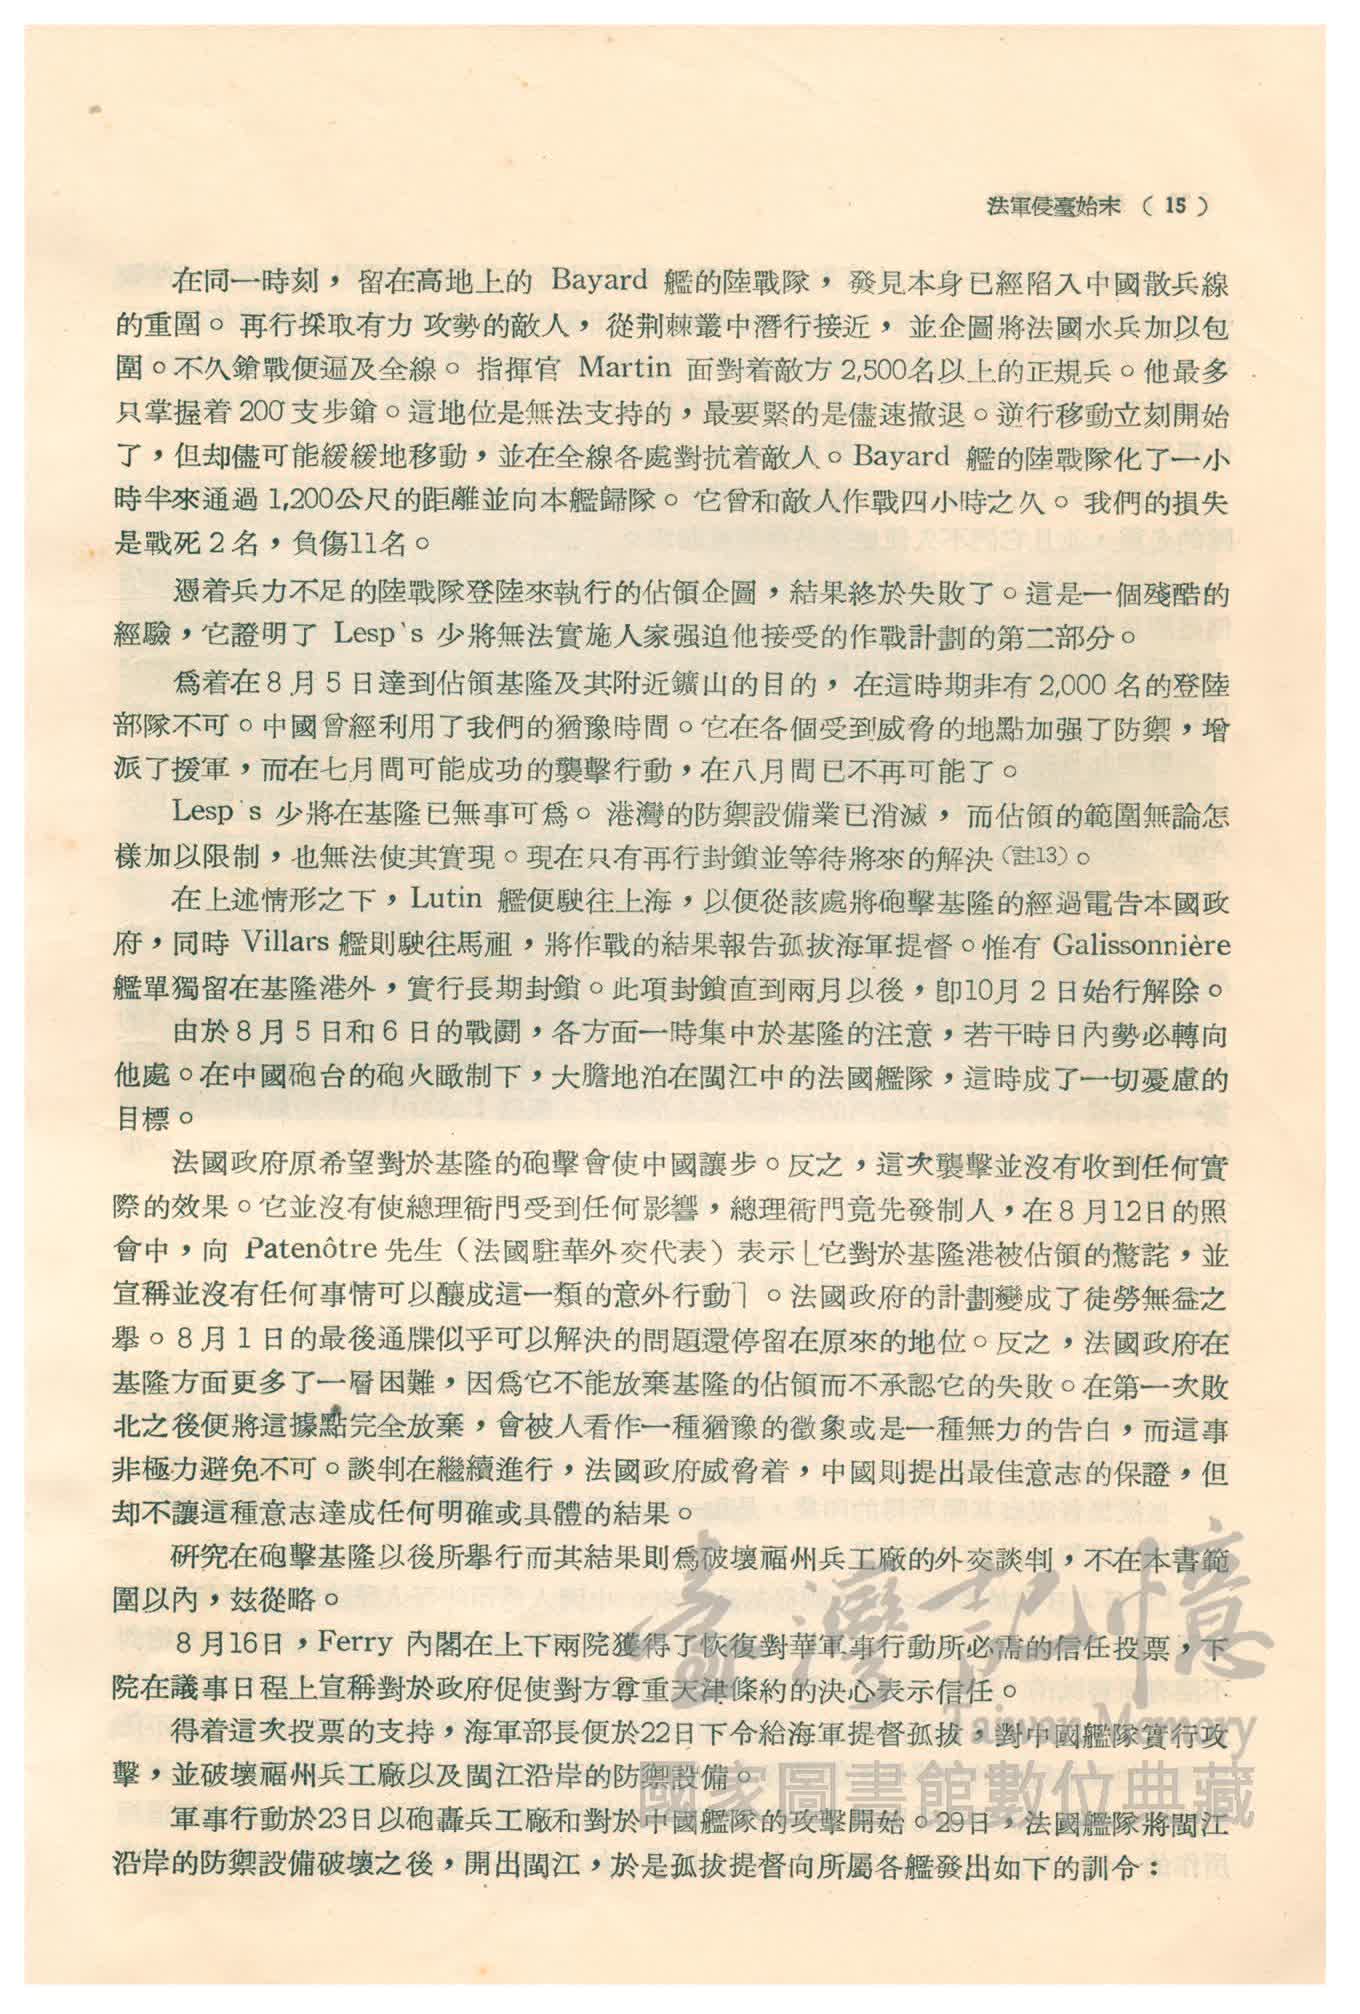 法軍侵臺始末 （ 15 ）
在同一時刻，留在高地上的 Bayard 艦的陸戰隊，發見本身已經陷入中國散兵線
的重圍。再行採取有力攻勢的敵人，從荆棘叢中潛行接近，並企圖將法國水兵加以包
圍。不久鎗戰便遍及全線。指揮官 Martin 面對着敵方2,500名以上的正規兵。他最多
只掌握着200支步鎗。這地位是無法支持的，最要緊的是儘速撤退。逆行移動立刻開始
了，但却儘可能緩緩地移動，並在全線各處對抗着敵人。Bayard 艦的陸戰隊化了一小
時半來通過1,200公尺的距離並向本艦歸隊。它曾和敵人作戰四小時之久。我們的損失
是戰死2名，負傷11名。
憑着兵力不足的陸戰隊登陸來執行的佔領企圖，結果終於失敗了。這是一個殘酷的
經驗，它證明了 Lesp's 少將無法實施人家强迫他接受的作戰計劃的第二部分。
爲着在8月5日達到佔領基隆及其附近鑛山的目的，在這時期非有2,000名的登陸
部隊不可。中國曾經利用了我們的猶豫時間。它在各個受到威脅的地點加强了防禦，增
派了援軍，而在七月間可能成功的襲擊行動，在八月間已不再可能了。
Lesp's 少將在基隆已無事可爲。港灣的防禦設備業已消滅，而佔領的範圍無論怎
樣加以限制，也無法使其實現。現在只有再行封鎖並等待將來的解決（註13）。
在上述情形之下，Lutin 艦便駛往上海，以便從該處將砲擊基隆的經過電告本國政
府，同時 Villars 艦則駛往馬祖，將作戰的結果報告孤拔海軍提督。惟有 Galissonnière
艦單獨留在基隆港外，實行長期封鎖。此項封鎖直到兩月以後，卽10月2日始行解除。
由於8月5日和6日的戰鬪，各方面一時集中於基隆的注意，若干時日內勢必轉向
他處。在中國砲台的砲火瞰制下，大膽地泊在閩江中的法國艦隊，這時成了一切憂慮的
目標。
法國政府原希望對於基隆的砲擊會使中國讓步。反之，這次襲擊並沒有收到任何實
際的效果。它並沒有使總理衙門受到任何影響，總理衙門竟先發制人，在8月12日的照
會中，向 Patenôtre 先生（法國駐華外交代表）表示﹂它對於基隆港被佔領的驚詫，並
宣稱並沒有任何事情可以釀成這一類的意外行動﹁。法國政府的計劃變成了徒勞無益之
舉。8月1日的最後通牒似乎可以解決的問題還停留在原來的地位。反之，法國政府在
基隆方面更多了一層困難，因爲它不能放棄基隆的佔領而不承認它的失敗。在第一次敗
北之後便將這據點完全放棄，會被人看作一種猶豫的徵象或是一種無力的告白，而這事
非極力避免不可。談判在繼續進行，法國政府威脅着，中國則提出最佳意志的保證，但
却不讓這種意志達成任何明確或具體的結果。
研究在砲擊基隆以後所舉行而其結果則爲破壞福州兵工廠的外交談判，不在本書範
圍以內，玆從略。
8月16日，Ferry 內閣在上下兩院獲得了恢復對華軍事行動所必需的信任投票，下
院在議事日程上宣稱對於政府促使對方尊重天津條約的決心表示信任。
得着這次投票的支持，海軍部長便於22日下令給海軍提督孤拔，對中國艦隊實行攻
擊，並破壞福州兵工廠以及閩江沿岸的防禦設備。
軍事行動於23日以砲轟兵工廠和對於中國艦隊的攻擊開始。29日，法國艦隊將閩江
沿岸的防禦設備破壞之後，開出閩江，於是孤拔提督向所屬各艦發出如下的訓令：
臺灣記憶
Taiwan Memory
國家圖書館數位典藏